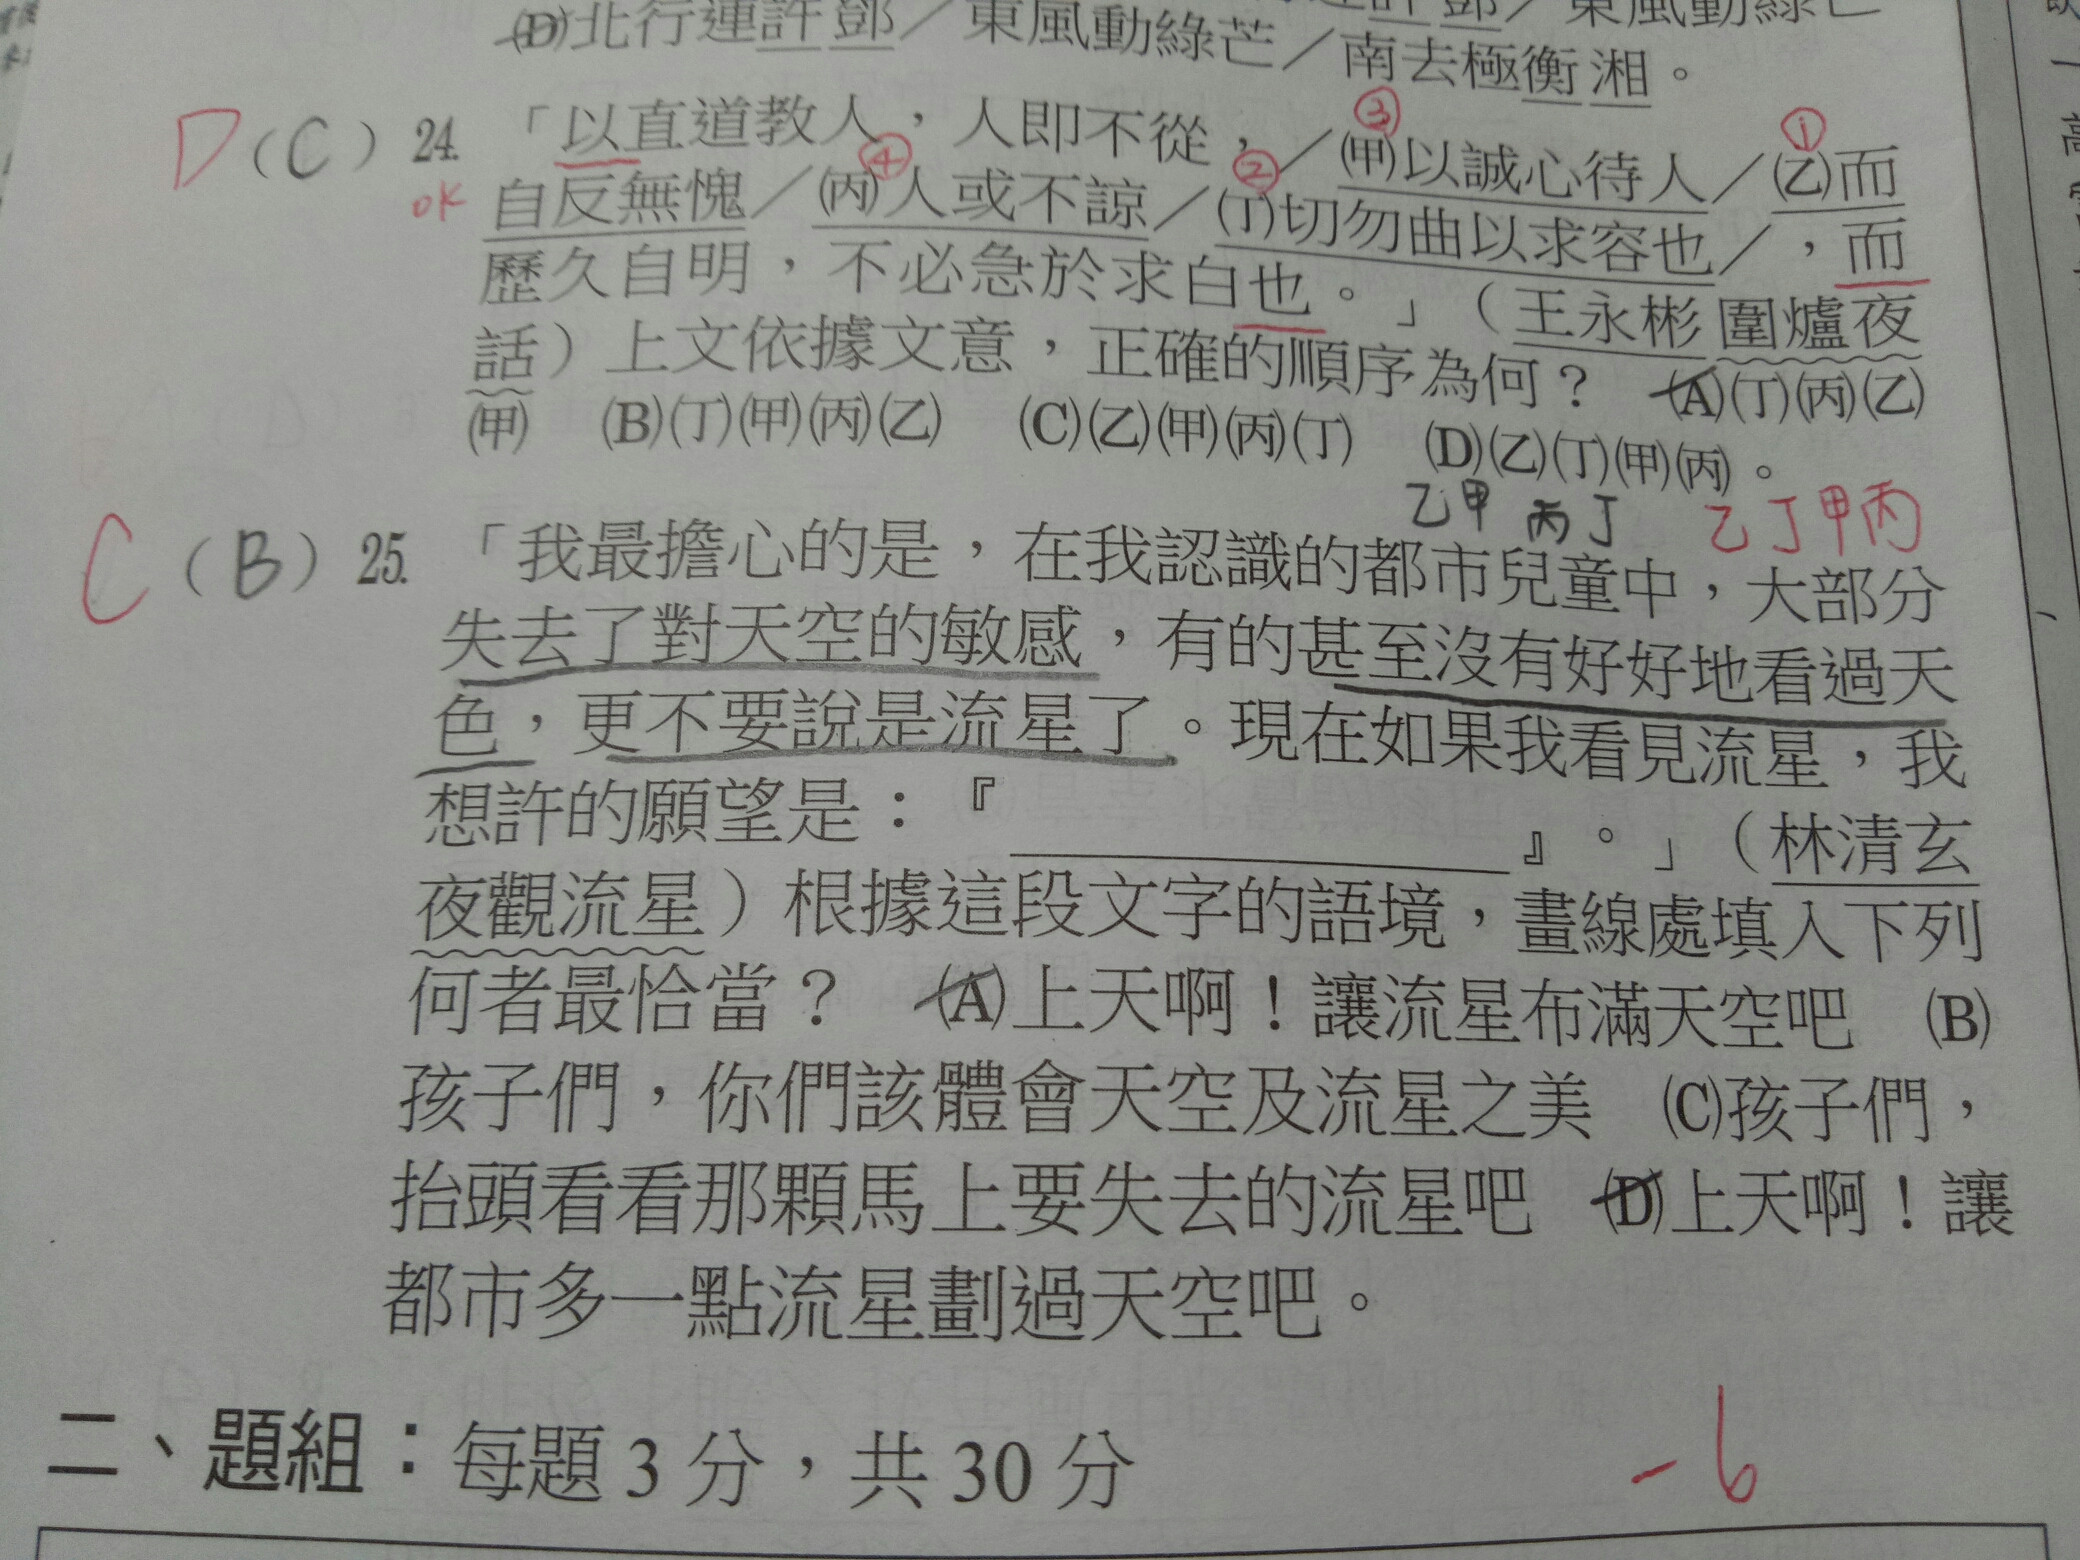 (D)北行連許鄧／東風動綠芒／南去極衡湘。
D（C）24.「以直道教人，人即不從，／(甲)以誠心待人／(乙)而
③ ①
ok 自反無愧／(丙)人或不諒／(丁)切勿曲以求容也／，而
④ ②
歷久自明，不必急於求白也。」（王永彬圍爐夜
話）上文依據文意，正確的順序為何？ (A)(丁)(丙)(乙)
(甲) (B)(丁)(甲)(丙)(乙) (C)(乙)(甲)(丙)(丁) (D)(乙)(丁)(甲)(丙)。
乙甲丙丁 乙丁甲丙
C（B）25.「我最擔心的是，在我認識的都市兒童中，大部分
失去了對天空的敏感，有的甚至沒有好好地看過天
色，更不要說是流星了。現在如果我看見流星，我
想許的願望是：『 』。」（林清玄
夜觀流星）根據這段文字的語境，畫線處填入下列
何者最恰當？ (A)上天啊！讓流星布滿天空吧 (B)
孩子們，你們該體會天空及流星之美 (C)孩子們，
抬頭看看那顆馬上要失去的流星吧 (D)上天啊！讓
都市多一點流星劃過天空吧。
二、題組：每題3分，共30分
-6